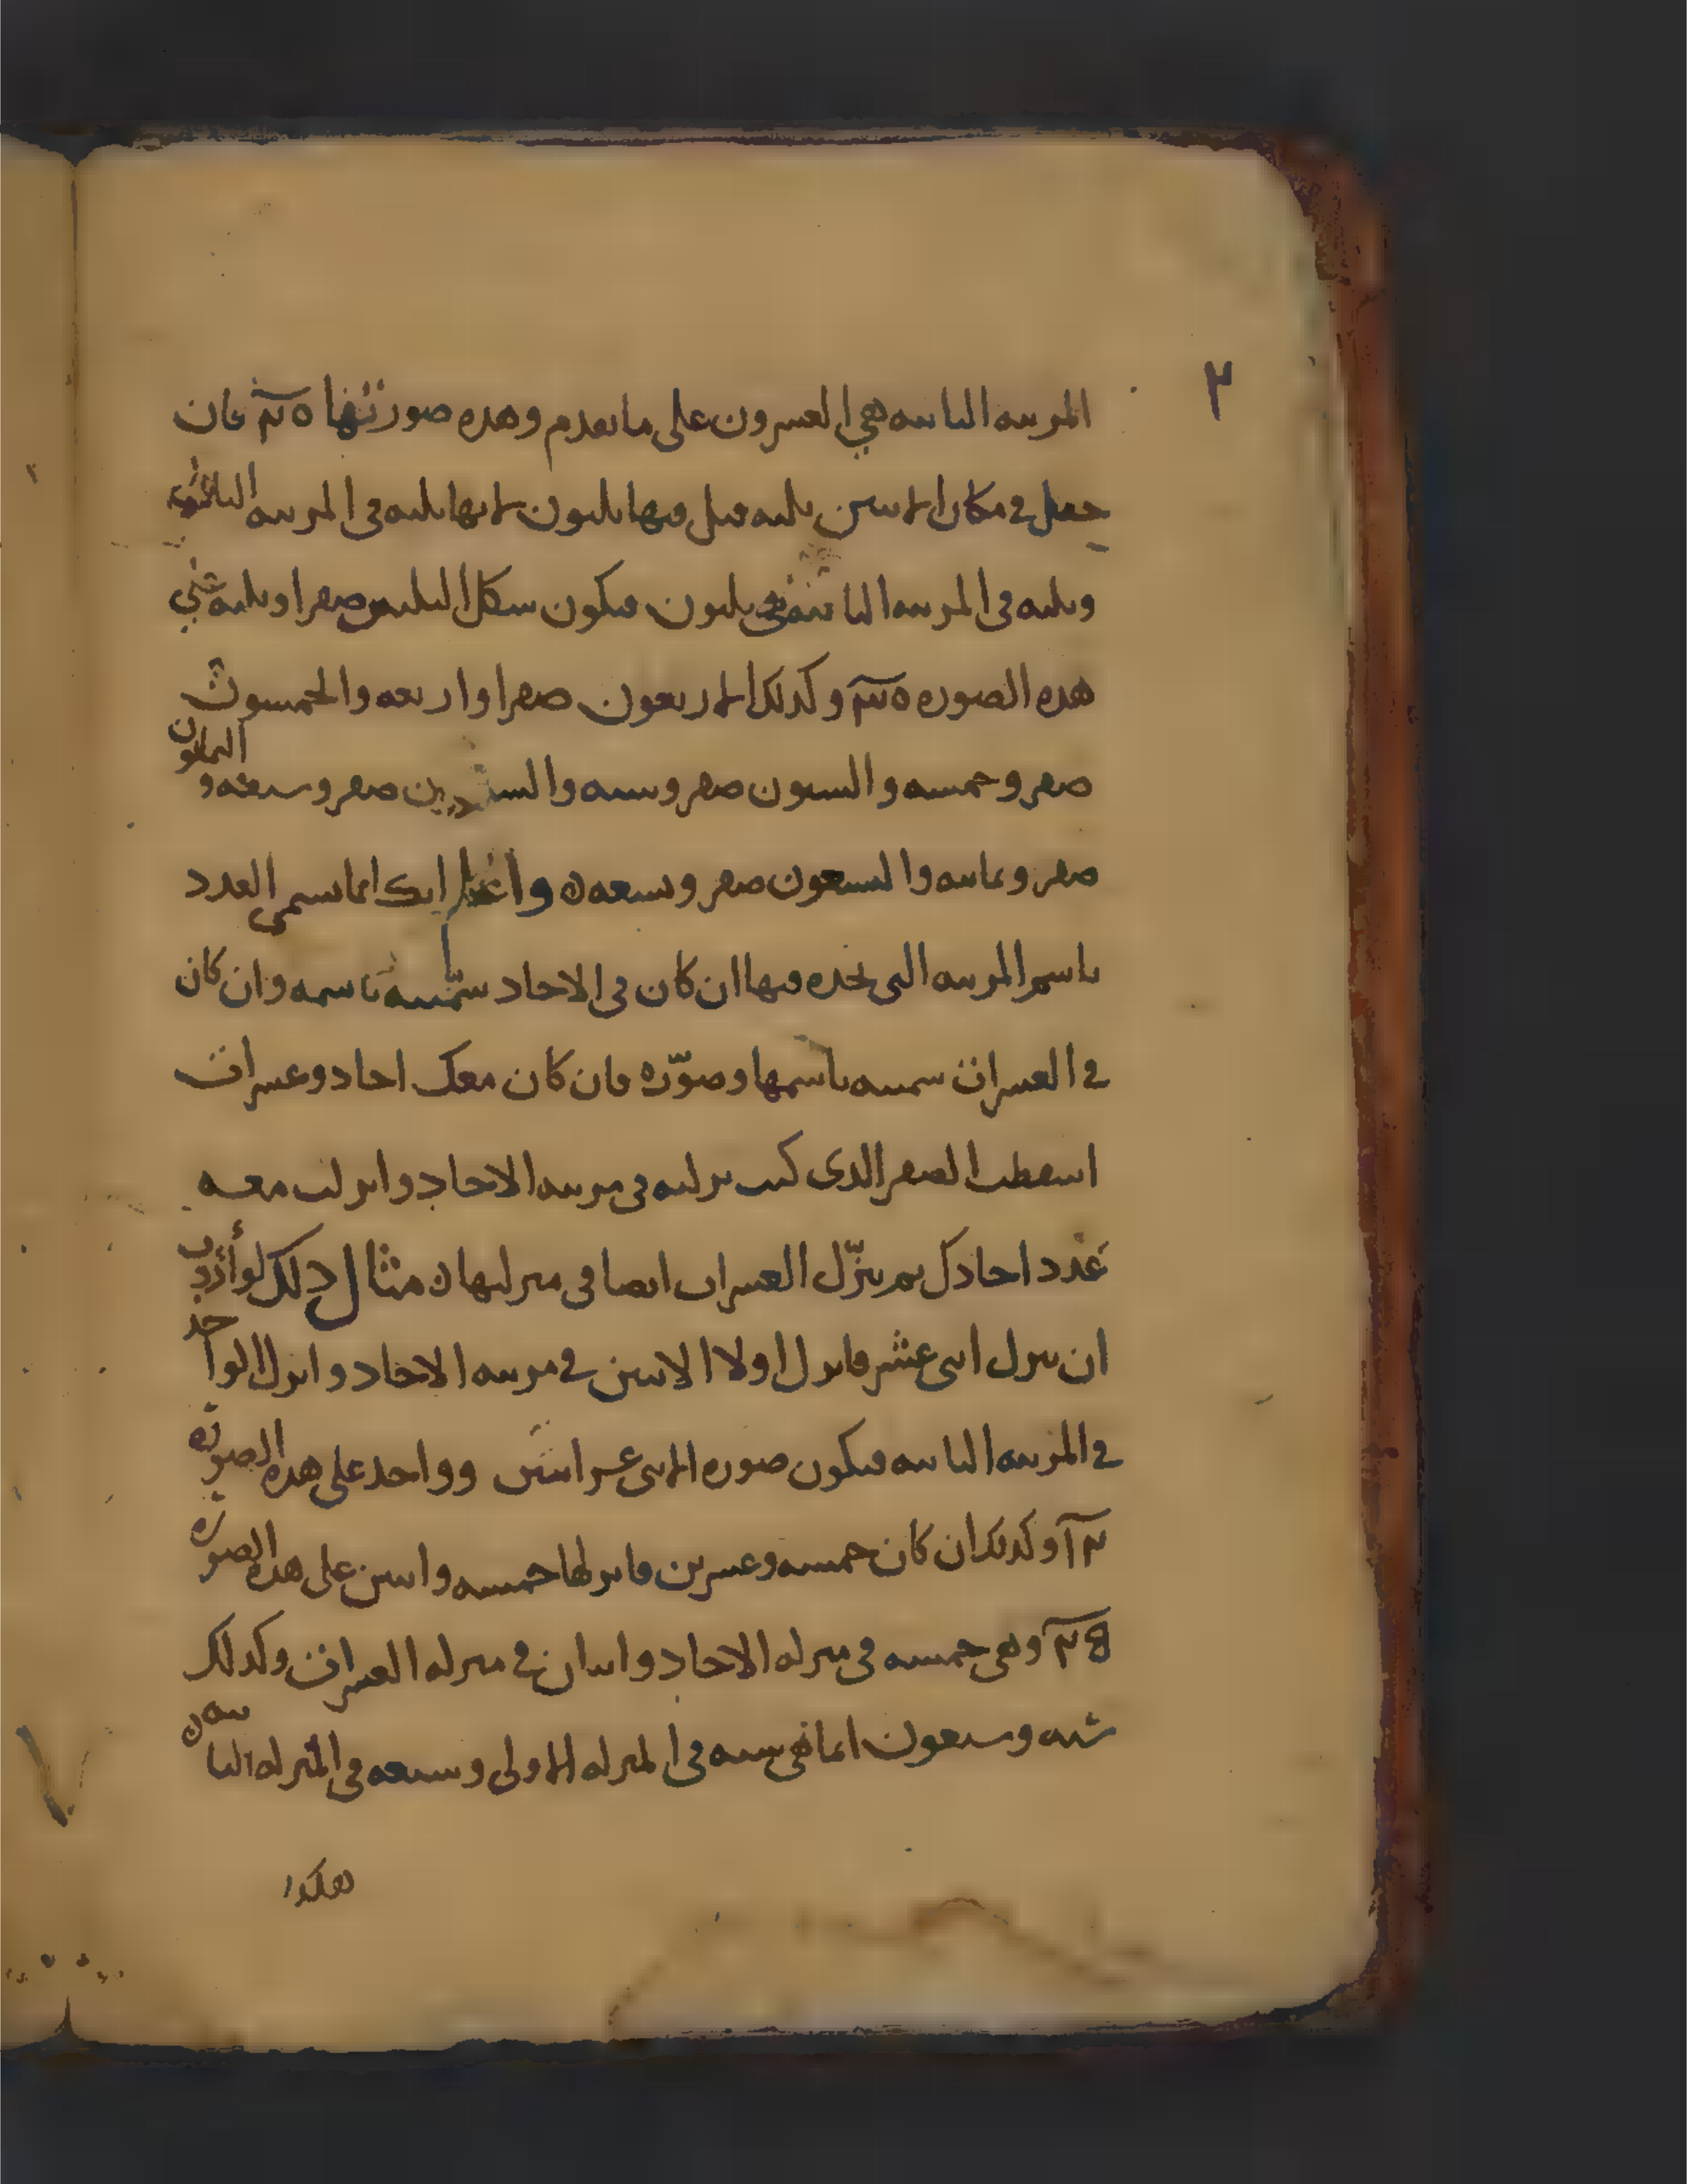 ٢
المرتبه الثانيه هي العشرون على ما تقدم وهذه صورتها ٥ ٢ فان
جعل في مكان الاثنين ثلثه قيل فيها ثلثون لانها ثلثه في المرتبه الثانيه
وثلثه في المرتبه الثانيه هي ثلثون فيكون شكل الثلثين صفرا وثلثه
هذه الصوره ٥ ٣ وكذلك الاربعون صفرا واربعه والخمسون
صفر وخمسه والستون صفر وسته والسبعين صفر وسبعه والثمانون
صفر وثمانيه والتسعون صفر وتسعه ٥ واعلم انك انما تسمي العدد
باسم المرتبه التي تجده فيها ان كان في الاحاد سميته باسمه وان كان
في العشرات سميته باسمها وصوره فان كان معك احاد وعشرات
اسقطت الصفر الذي كنت نزلته في مرتبه الاحاد وانزلت معه
عدد احادك ثم تنزل العشرات ايضا في منزلتها ٥ مثال ذلك لو أردت
ان تنزل اثنى عشر فانزل اولا الاثنين في مرتبه الاحاد وانزل الواحد
في المرتبه الثانيه فيكون صوره الاثنى عشر اثنين وواحد على هذه الصوره
٢ ١ وكذلك ان كان خمسه وعشرين فانزلها خمسه واثنين على هذه الصوره
٥ ٢ وهي خمسه في منزله الاحاد واثنان في منزله العشرات وكذلك
سته وسبعون انما هي سته في المنزله الاولى وسبعه في المنزله الثانيه ٥
هكذا